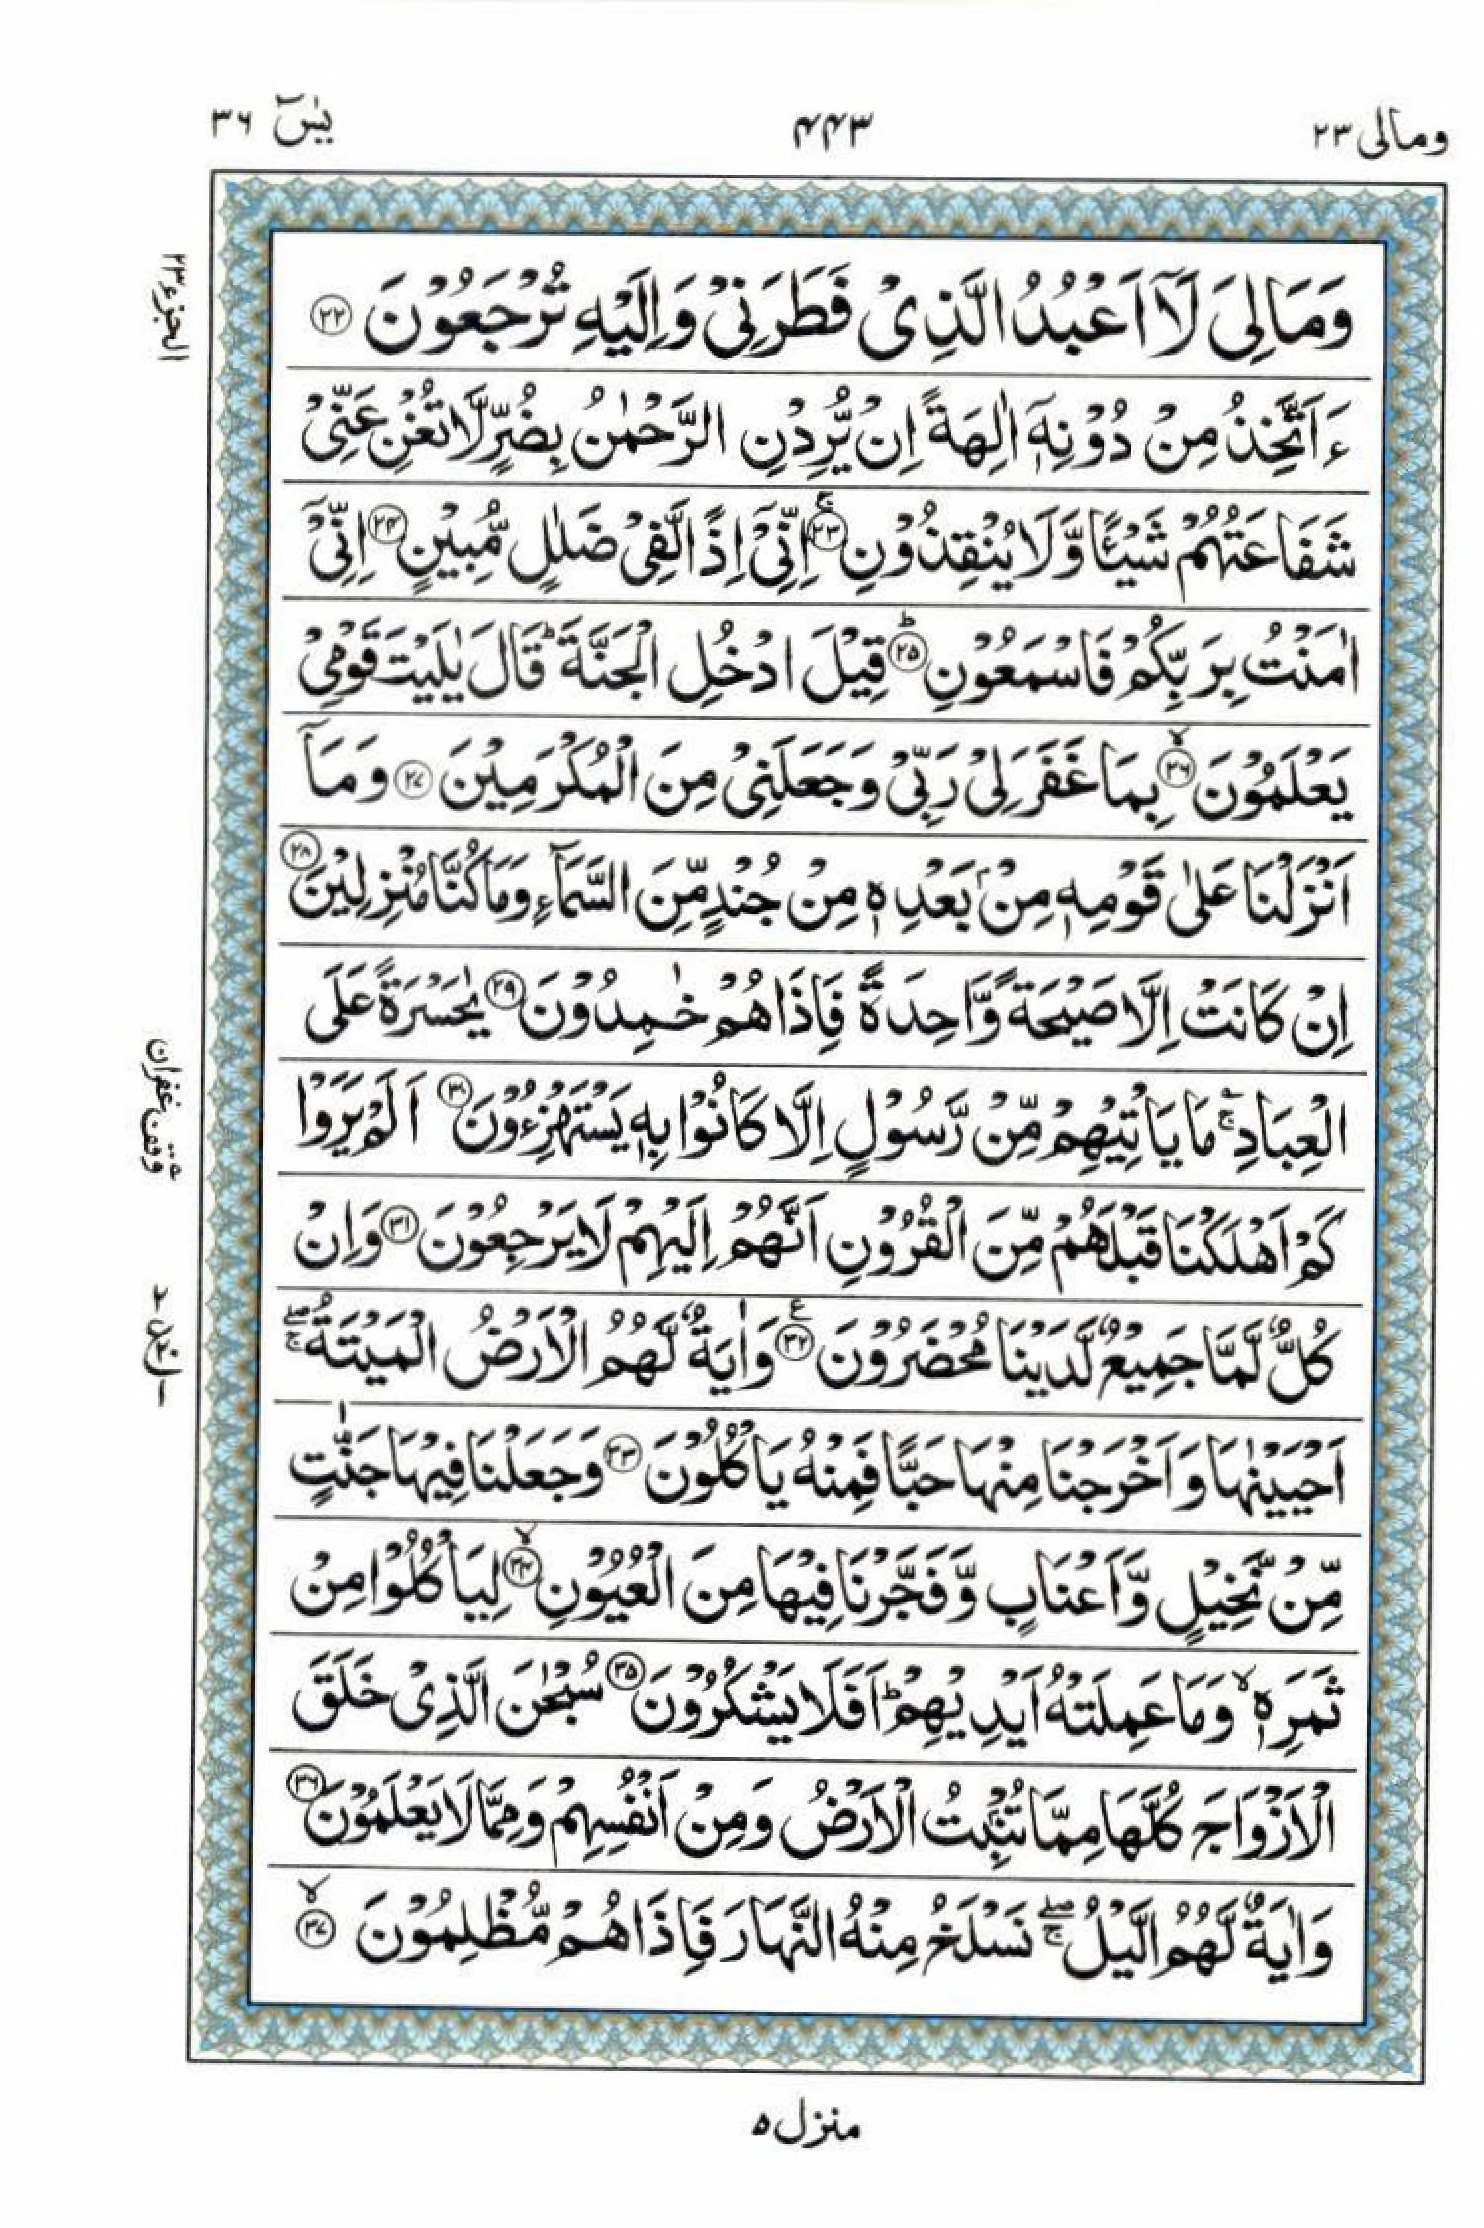 ومالی ۲۳
۴۴۳
یٰسٓ ۳۶
الجزء ۲۳
وَمَا لِیَ لَاۤ اَعْبُدُ الَّذِیْ فَطَرَنِیْ وَاِلَیْهِ تُرْجَعُوْنَ ۝۲۲
ءَاَتَّخِذُ مِنْ دُوْنِهٖۤ اٰلِهَةً اِنْ یُّرِدْنِ الرَّحْمٰنُ بِضُرٍّ لَّا تُغْنِ عَنِّیْ
شَفَاعَتُهُمْ شَیْـًٔا وَّلَا یُنْقِذُوْنِ ۝۲۳ۚ اِنِّیْۤ اِذًا لَّفِیْ ضَلٰلٍ مُّبِیْنٍ ۝۲۴ اِنِّیْۤ
اٰمَنْتُ بِرَبِّكُمْ فَاسْمَعُوْنِ ۝۲۵ؕ قِیْلَ ادْخُلِ الْجَنَّةَ ؕ قَالَ یٰلَیْتَ قَوْمِیْ
یَعْلَمُوْنَ ۝۲۶ۙ بِمَا غَفَرَ لِیْ رَبِّیْ وَجَعَلَنِیْ مِنَ الْمُكْرَمِیْنَ ۝۲۷ وَمَاۤ
اَنْزَلْنَا عَلٰی قَوْمِهٖ مِنْۢ بَعْدِهٖ مِنْ جُنْدٍ مِّنَ السَّمَآءِ وَمَا كُنَّا مُنْزِلِیْنَ ۝۲۸
اِنْ كَانَتْ اِلَّا صَیْحَةً وَّاحِدَةً فَاِذَا هُمْ خٰمِدُوْنَ ۝۲۹ یٰحَسْرَةً عَلَی
الْعِبَادِ ۚ مَا یَاْتِیْهِمْ مِّنْ رَّسُوْلٍ اِلَّا كَانُوْا بِهٖ یَسْتَهْزِءُوْنَ ۝۳۰ اَلَمْ یَرَوْا
وقف غفران
كَمْ اَهْلَكْنَا قَبْلَهُمْ مِّنَ الْقُرُوْنِ اَنَّهُمْ اِلَیْهِمْ لَا یَرْجِعُوْنَ ۝۳۱ وَاِنْ
كُلٌّ لَّمَّا جَمِیْعٌ لَّدَیْنَا مُحْضَرُوْنَ ۝۳۲ع وَاٰیَةٌ لَّهُمُ الْاَرْضُ الْمَیْتَةُ ۖۚ
اَحْیَیْنٰهَا وَاَخْرَجْنَا مِنْهَا حَبًّا فَمِنْهُ یَاْكُلُوْنَ ۝۳۳ وَجَعَلْنَا فِیْهَا جَنّٰتٍ
مِّنْ نَّخِیْلٍ وَّاَعْنَابٍ وَّفَجَّرْنَا فِیْهَا مِنَ الْعُیُوْنِ ۝۳۴ۙ لِیَاْكُلُوْا مِنْ
ثَمَرِهٖ ۙ وَمَا عَمِلَتْهُ اَیْدِیْهِمْ ؕ اَفَلَا یَشْكُرُوْنَ ۝۳۵ سُبْحٰنَ الَّذِیْ خَلَقَ
الْاَزْوَاجَ كُلَّهَا مِمَّا تُنْۢبِتُ الْاَرْضُ وَمِنْ اَنْفُسِهِمْ وَمِمَّا لَا یَعْلَمُوْنَ ۝۳۶
وَاٰیَةٌ لَّهُمُ الَّیْلُ ۖۚ نَسْلَخُ مِنْهُ النَّهَارَ فَاِذَا هُمْ مُّظْلِمُوْنَ ۝۳۷ۙ
منزل ۵